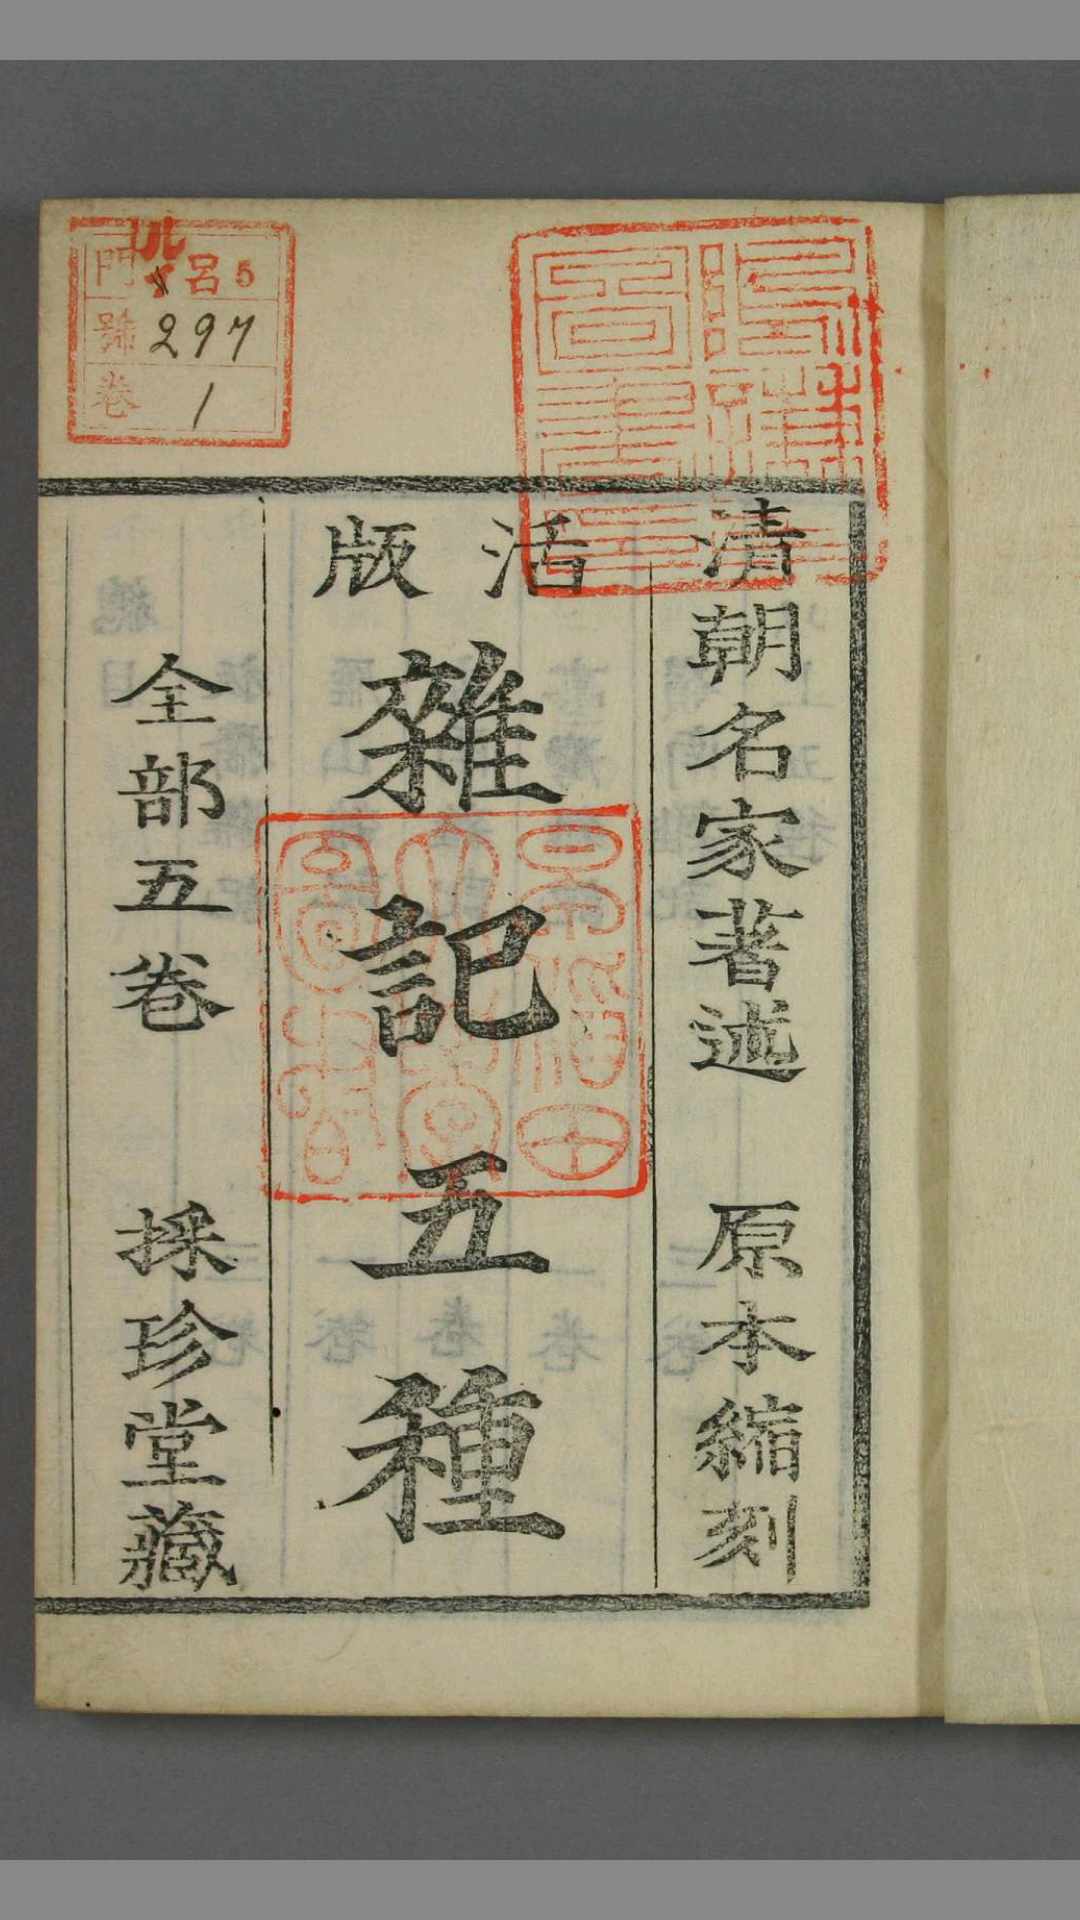 清朝名家著述　原本縮刻
活版
雜記五種
全部五卷　採珍堂藏
門 呂5
號 297
卷 1